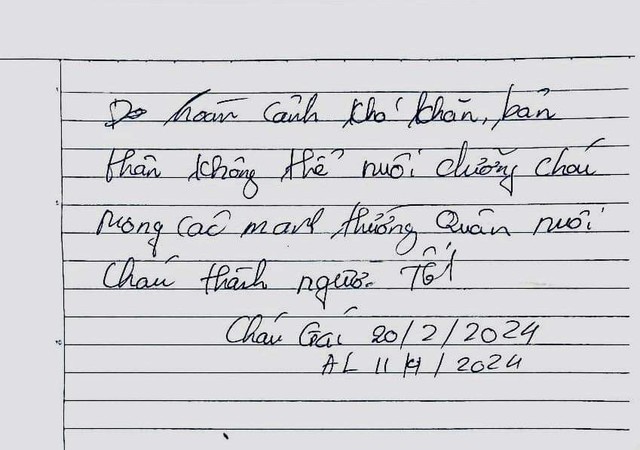 Do hoàn cảnh khó khăn, bản
thân không thể nuôi dưỡng cháu
mong các manh thường Quân nuôi
Cháu thành người Tốt
Cháu Gái 20/2/2024
AL 11/1/2024